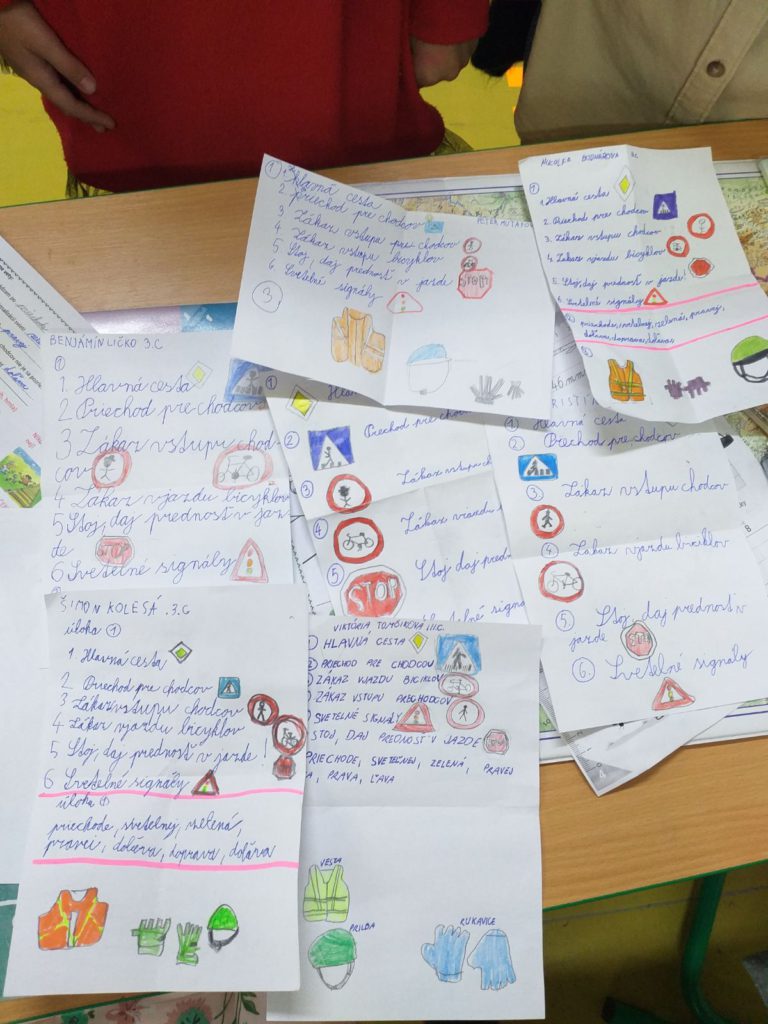 1
1. Hlavná cesta
2 priechod pre chodcov
PETER
3 Zákaz vstupu pre chodcov
4 Zákaz vstupu bicyklov
5 Stoj, daj prednosť v jazde
STOP
6. Svetelné signály
3
NIKOLKA BEDNÁROVÁ 3.C
1
1. Hlavná cesta
2. Priechod pre chodcov
3. Zákaz vstupu chodcov
4. Zákaz vjazdu bicyklov
5. Stoj, daj prednosť v jazde!
6. Svetelné signály
BENJAMÍN LIČKO 3.C
1
1. Hlavná cesta
2 Priechod pre chodcov
3 Zákaz vstupu chod-
cov
4 Zákaz vjazdu bicyklov
5 Stoj, daj prednosť v jaz-
de
STOP
6 Svetelné signály
1
2 Priechod pre chodcov
3 Zákaz vstupu ch
4
5 Stoj daj pred
STOP
signá
46 mm
RISTI
1 Hlavná cesta
2 Priechod pre chodcov
3. Zákaz vstupu chodcov
4. Zákaz vjazdu bicyklov
5 Stoj, daj prednosť v
jazde
STOP
6. Svetelné signály
ŠIMON KOLESÁ .3.C
úloha 1
1. Hlavná cesta
2 Priechod pre chodcov
3 Zákaz vstupu chodcov
4 Zákaz vjazdu bicyklov
5 Stoj, daj prednosť v jazde!
6 Svetelné signály
úloha
priechode, svetelnej, zelená,
pravej, doľava, doprava, doľava
VIKTÓRIA TOMČÍKOVÁ III.C
1 HLAVNÁ CESTA
PRIECHOD PRE CHODCOV
ZÁKAZ VJAZDU BICIKLOV
ZÁKAZ VSTUPU PRECHODCOV
SVETELNÉ SIGNÁLY
STOJ, DAJ PREDNOSŤ V JAZDE
PRIECHODE, SVETEĽNEJ, ZELENÁ, PRAVEJ
A, PRAVA, ĽAVA
VESTA
PRILBA
RUKAVICE